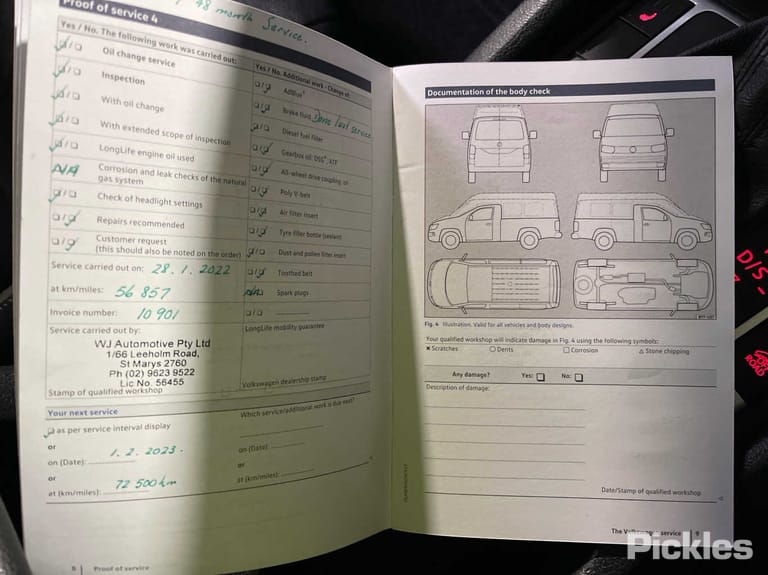 Proof of service 4
48 month Service.
Yes / No. The following work was carried out:
Oil change service
Inspection
With oil change
With extended scope of inspection
LongLife engine oil used
N/A Corrosion and leak checks of the natural
gas system
Check of headlight settings
Repairs recommended
Customer request
(this should also be noted on the order)
Service carried out on: 28.1.2022
at km/miles: 56 857
Invoice number: 10 901
Service carried out by:
WJ Automotive Pty Ltd
1/66 Leeholm Road,
St Marys 2760
Ph (02) 9623 9522
Lic No. 56455
Stamp of qualified workshop
Yes / No. Additional work - Change of:
AdBlue
Brake fluid Done last service
Diesel fuel filter
Gearbox oil: DSG, ATF
All-wheel drive coupling oil
Poly V-belt
Air filter insert
Tyre filler bottle (sealant)
Dust and pollen filter insert
Toothed belt
N/A Spark plugs
LongLife mobility guarantee
Volkswagen dealership stamp
Your next service
as per service interval display
or
on (Date): 1.2.2023.
or
at (km/miles): 72 500 km
Which service/additional work is due next?
on (Date):
or
at (km/miles):
8 | Proof of service
Documentation of the body check
Fig. 4 Illustration. Valid for all vehicles and body designs.
Your qualified workshop will indicate damage in Fig. 4 using the following symbols:
Scratches Dents Corrosion Stone chipping
Any damage? Yes: No:
Description of damage:
Date/Stamp of qualified workshop
The Volkswagen service | 9
D/S
OFF
ROAD
Pickles